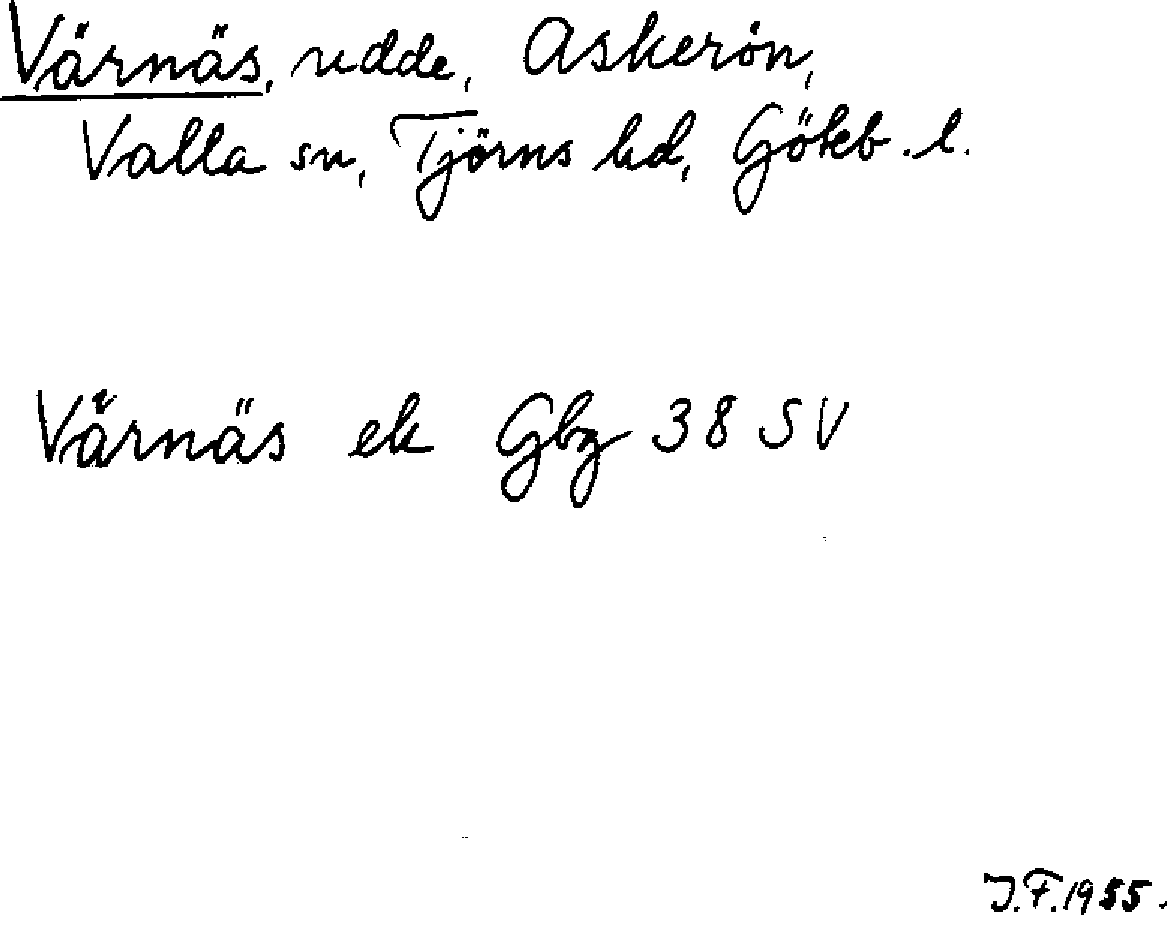 Värnäs, udde, Askerön,
Valla sn, Tjörns hd, Göteb. l.
Värnäs ek Gbg 38 SV
J.F. 1955.